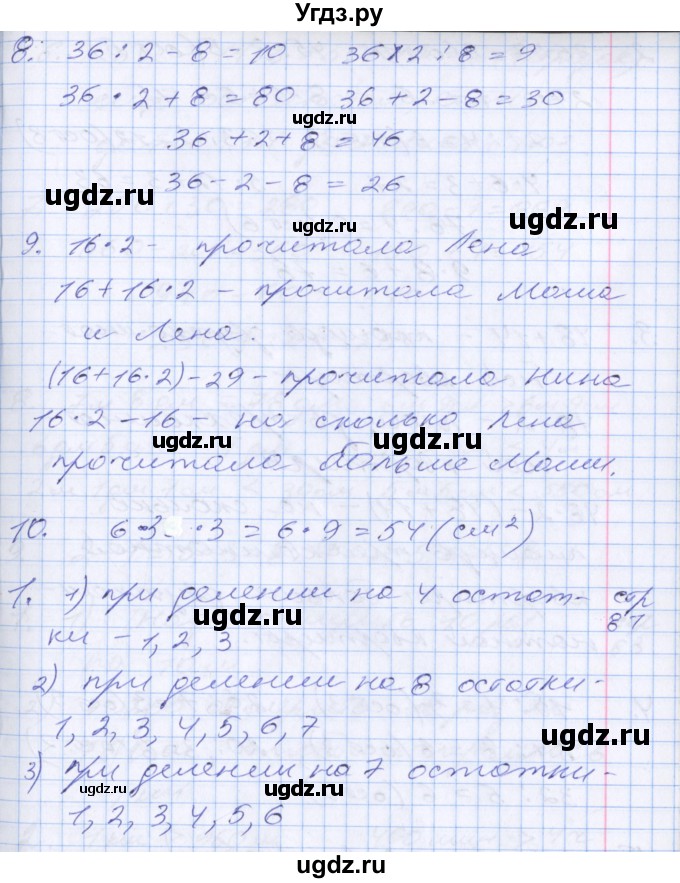 Угдз.ру
8. 36 : 2 - 8 = 10 36 · 2 : 8 = 9
36 · 2 + 8 = 80 36 + 2 - 8 = 30
ugdz.ru
36 + 2 + 8 = 46
ugdz.ru ugdz.ru
36 - 2 - 8 = 26
9. 16 · 2 - прочитала Лена
ugdz.ru
16 + 16 · 2 - прочитала Маша
и Лена.
ugdz.ru
(16 + 16 · 2) - 29 - прочитала Нина
16 · 2 - 16 - на сколько Лена
ugdz.ru ugdz.ru
прочитала больше Маши.
ugdz.ru
10. 6 · 3 · 3 = 6 · 9 = 54 (см²)
ugdz.ru
1. 1) при делении на 4 остат- стр
ки - 1, 2, 3 81
ugdz.ru
2) при делении на 8 остатки -
ugdz.ru
1, 2, 3, 4, 5, 6, 7
ugdz.ru
3) при делении на 7 остатки -
ugdz.ru
1, 2, 3, 4, 5, 6
ugdz.ru
ugdz.ru